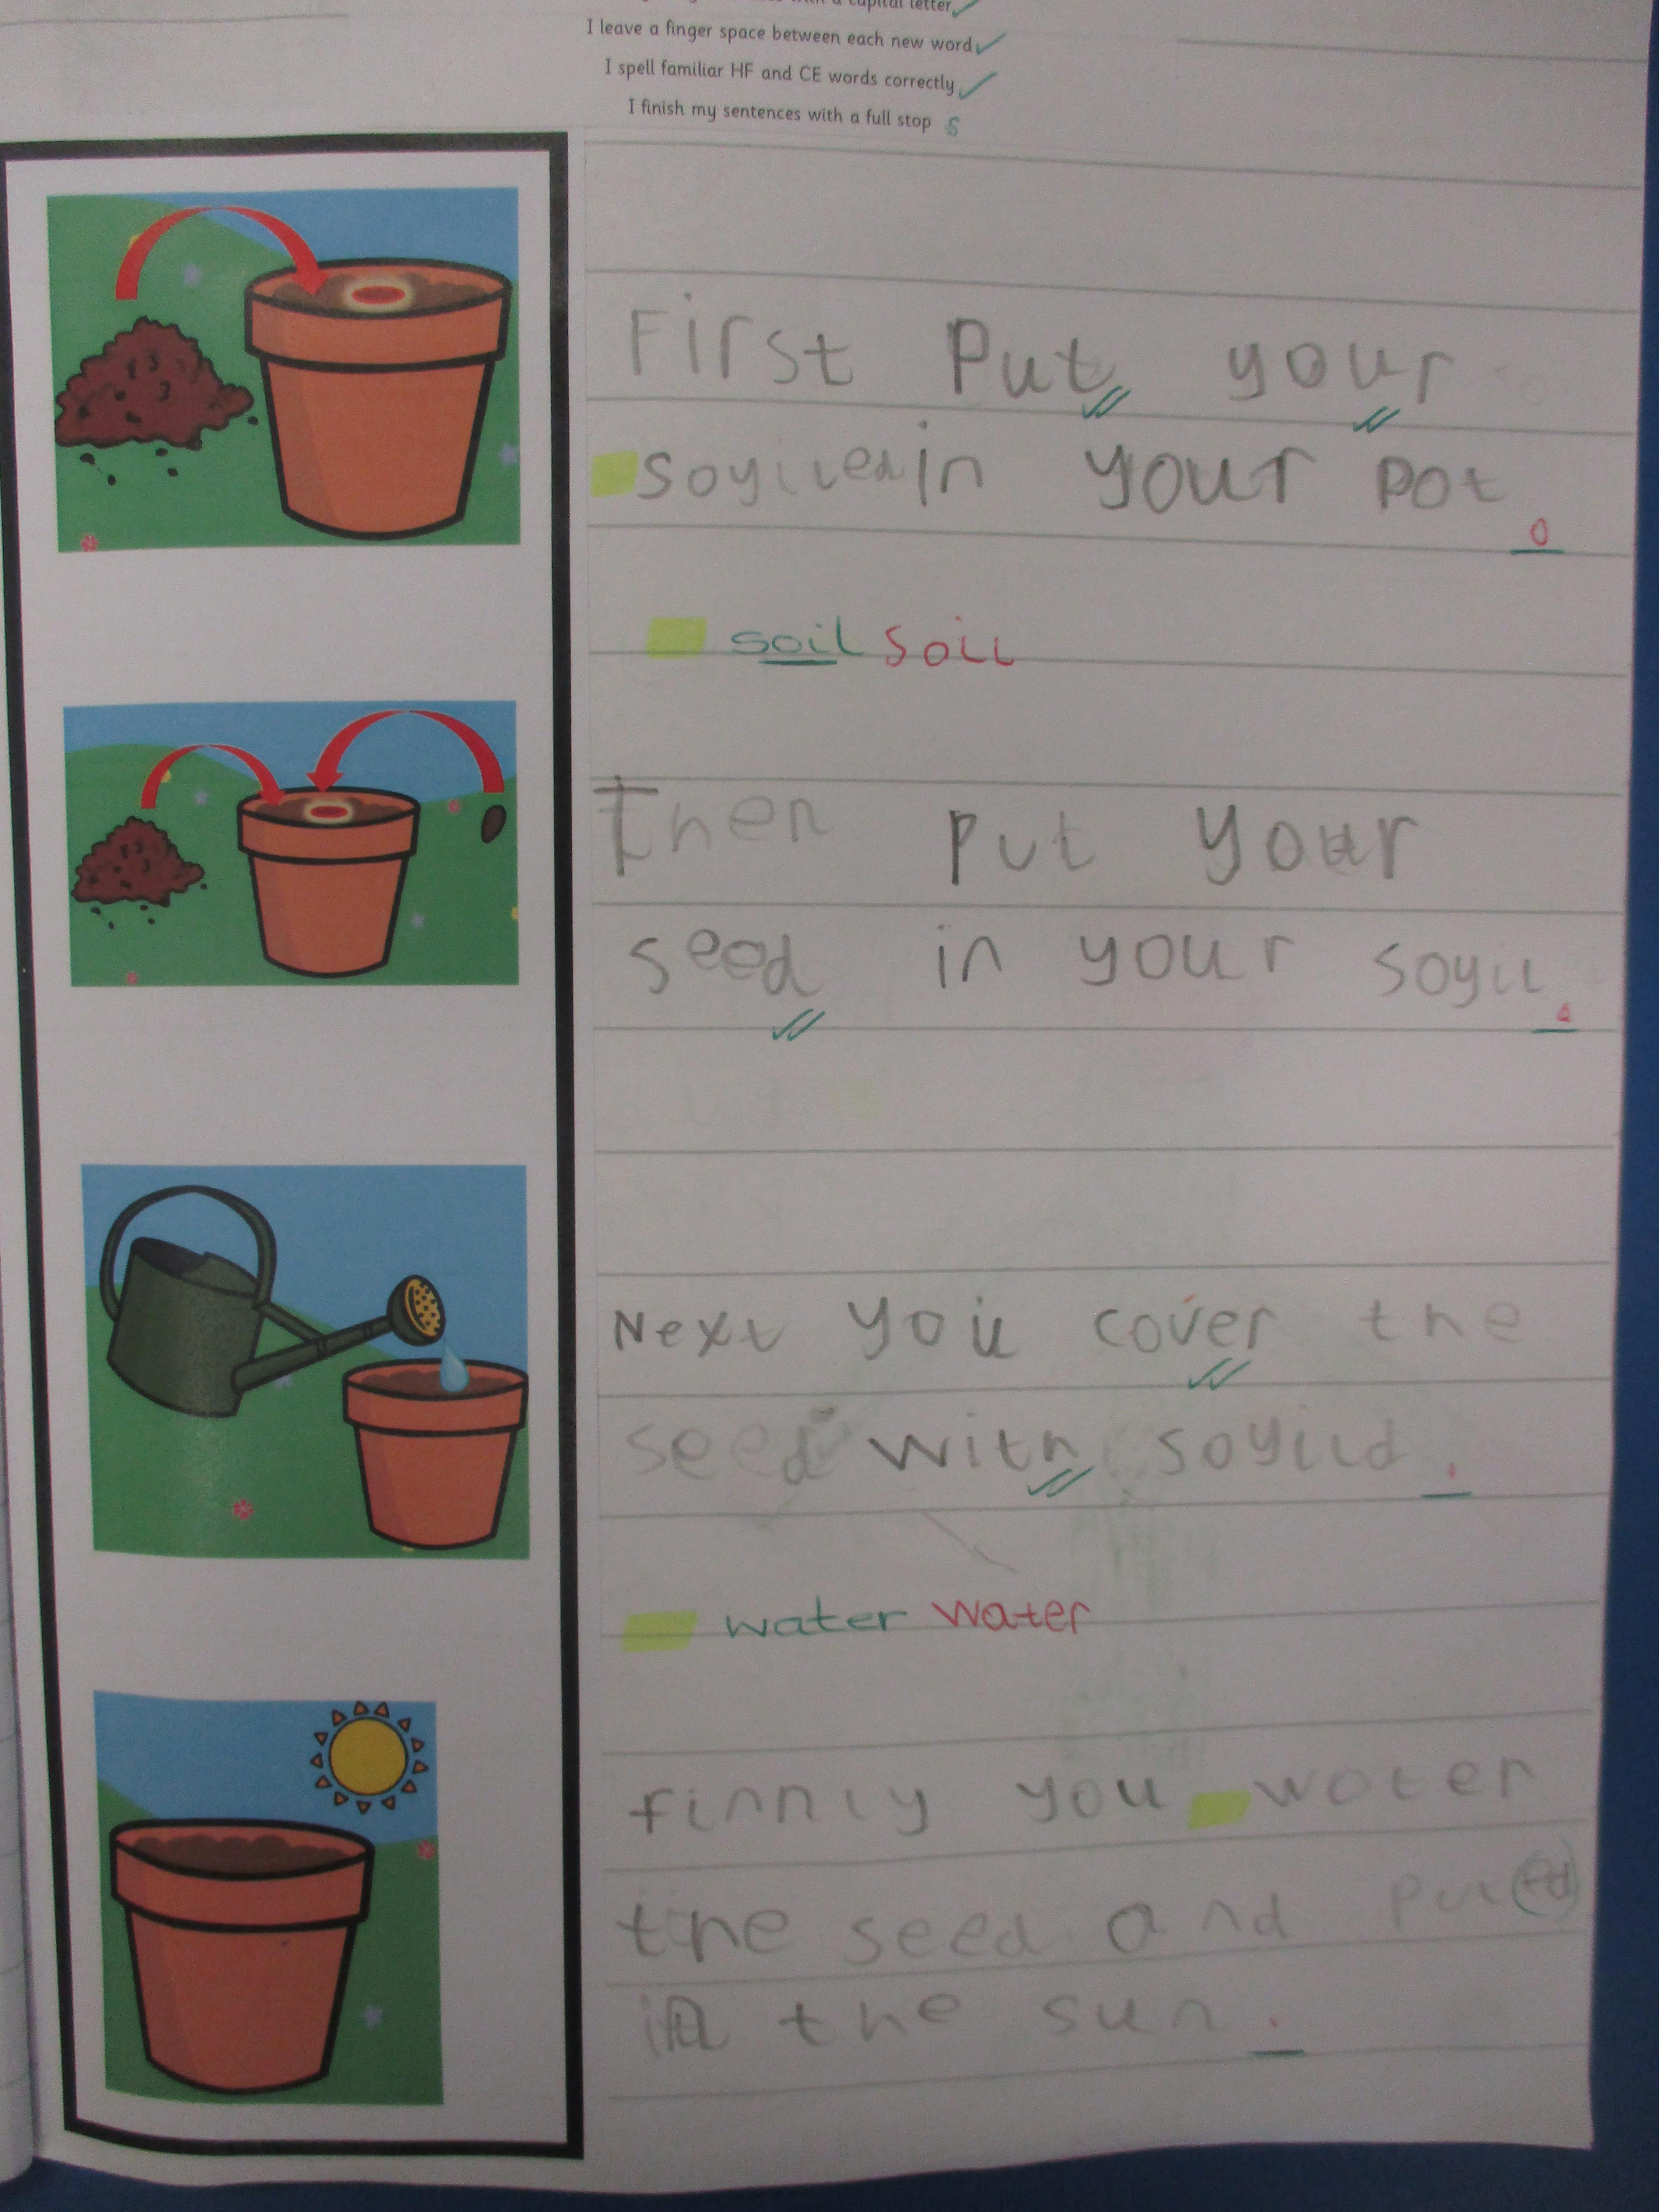 capital letter
I leave a finger space between each new word
I spell familiar HF and CE words correctly
I finish my sentences with a full stop S
First Put your
in your pot.
soil soil
Then put your
seed in your soyil.
Next you cover the
seed with soyild.
water water
finnly you woter
the seed and put(ed)
in the sun.